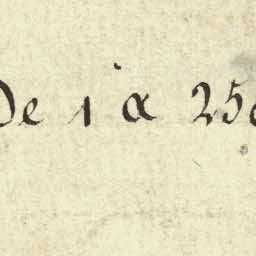 De 1 à 25